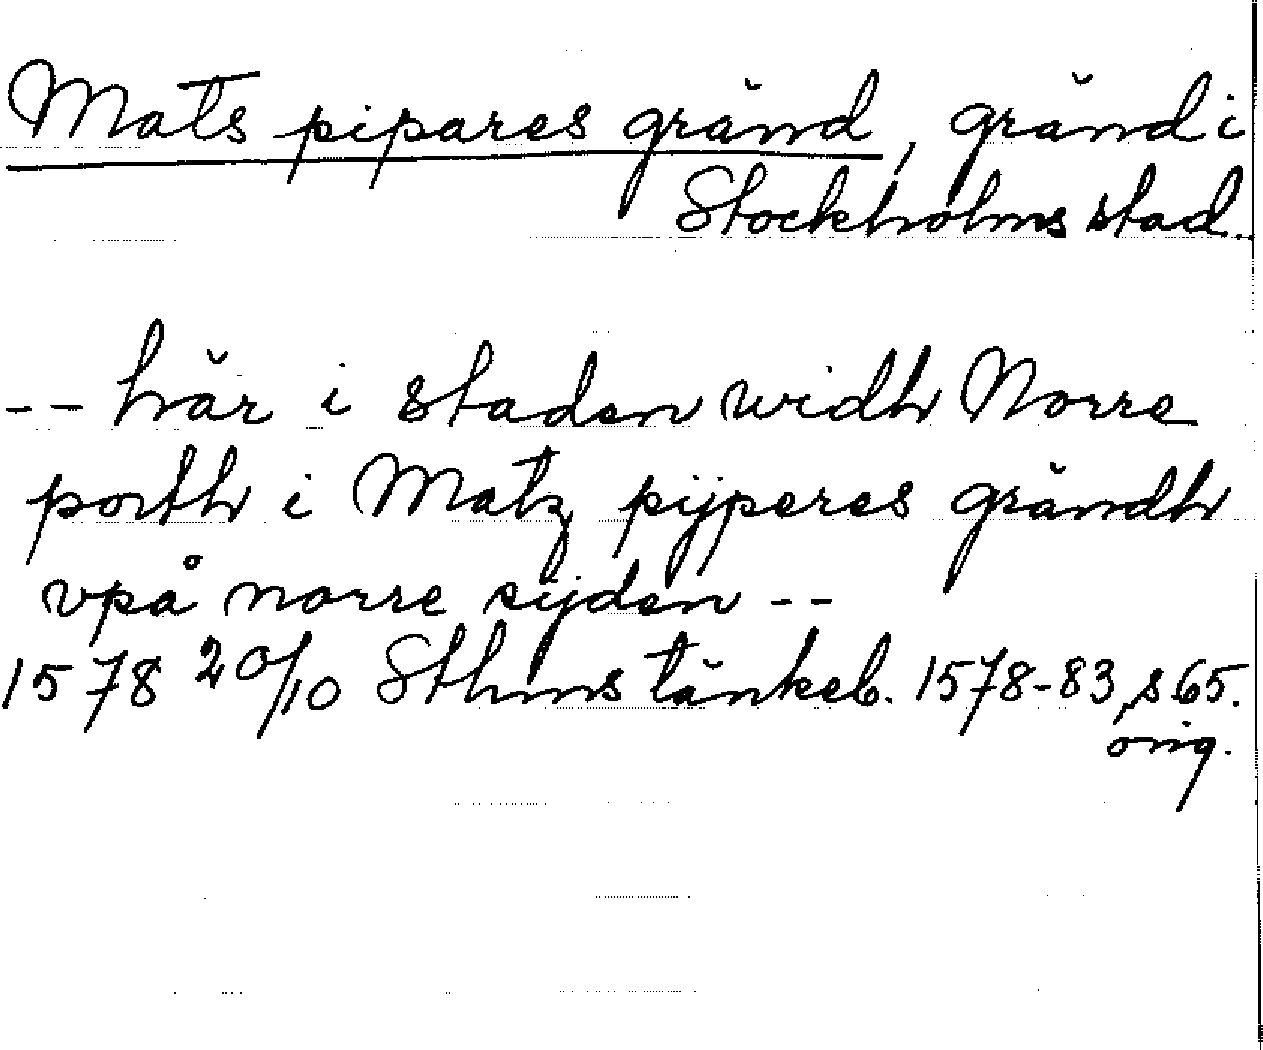 Mats pipares gränd, gränd i
Stockholms stad.
-- här i staden widh Norre
porth i Matz pijperes grändh
vpå norre sijden --
1578 20/10 Sthms tänkeb. 1578-83, s 65.
orig.